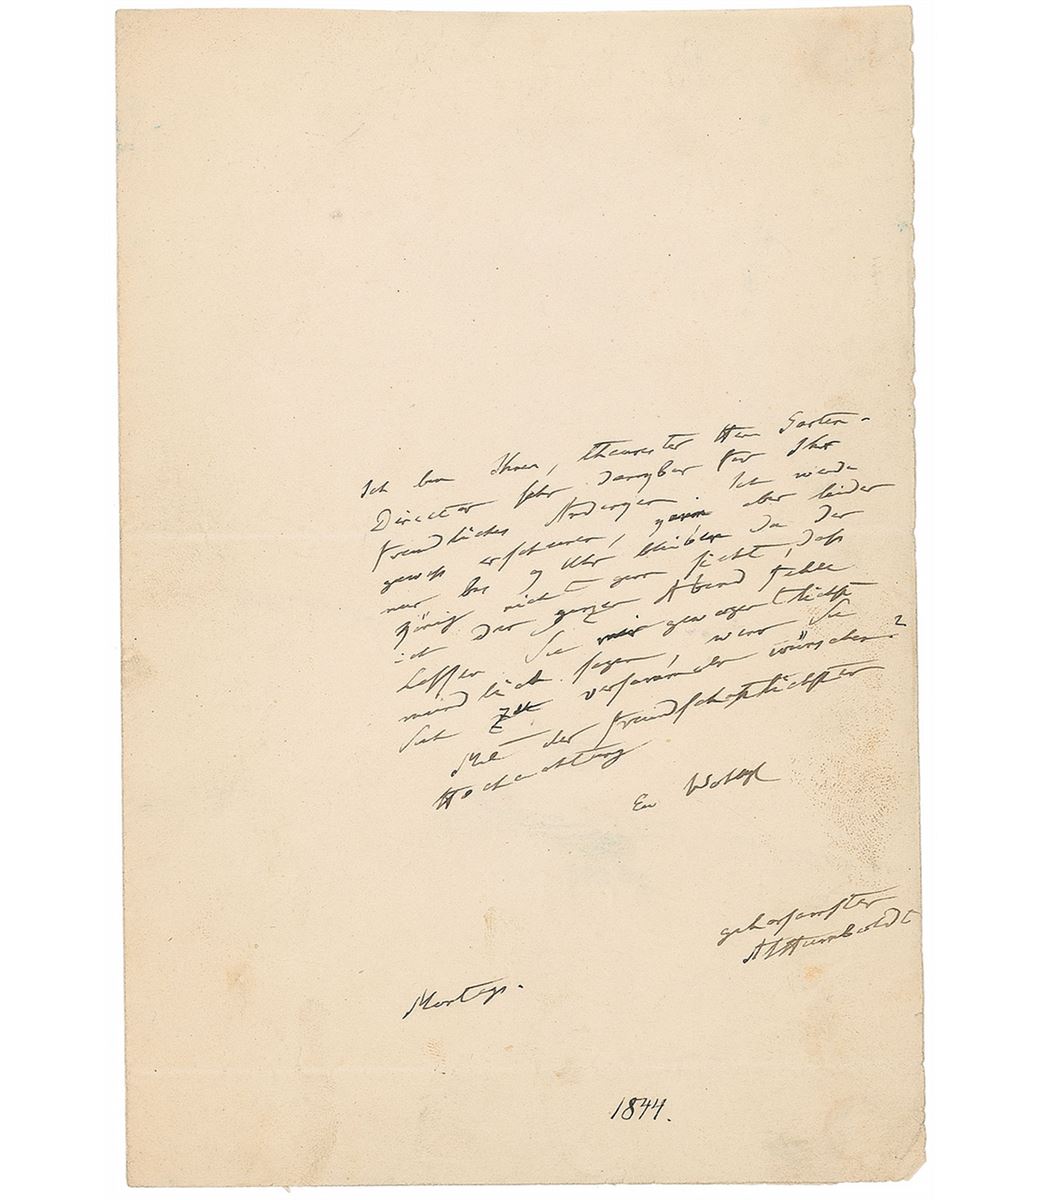 Ich bin Ihnen, theuerster Herr Garten-
Director sehr dankbar für Ihr
freundliches Andenken. Ich werde
gewiss erscheinen, kann aber leider
nur bis 9 Uhr bleiben da der
König nicht gern sieht, dass
ich den ganzen Abend fehle
Lassen Sie mir gewogentlichst
mündlich sagen, wann Sie
Sich zu versammeln wünschen?
Mit der freundschaftlichsten
Hochachtung
Ew Wohlg
gehorsamster
AlHumboldt
Montags.
1844.